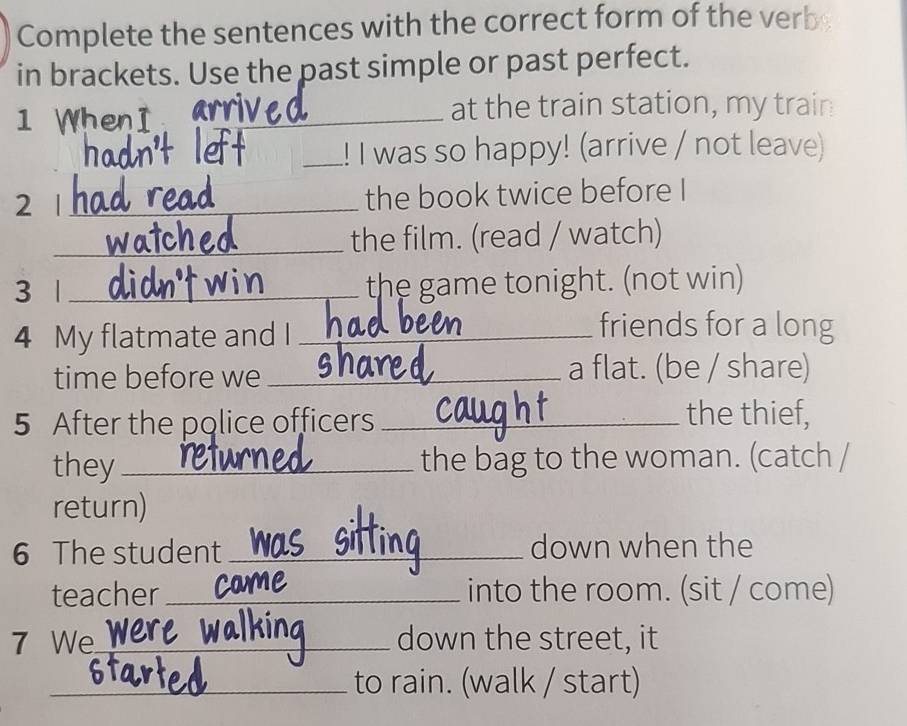 Complete the sentences with the correct form of the verbs
in brackets. Use the past simple or past perfect.
1 When I arrived at the train station, my train
hadn't left ! I was so happy! (arrive / not leave)
2 I had read the book twice before I
watched the film. (read / watch)
3 I didn't win the game tonight. (not win)
4 My flatmate and I had been friends for a long
time before we shared a flat. (be / share)
5 After the police officers caught the thief,
they returned the bag to the woman. (catch /
return)
6 The student was sitting down when the
teacher came into the room. (sit / come)
7 We were walking down the street, it
started to rain. (walk / start)